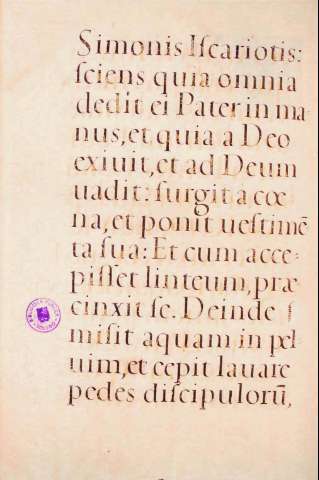 Simonis Iſcariotis:
ſciens quia omnia
dedit ei Pater in ma
nus, et quia a Deo
exiuit, et ad Deum
uadit: ſurgit a cœ
na, et ponit ueſtimē
ta ſua: Et cum acce-
piſſet linteum, præ
cinxit ſe. Deinde
miſit aquam in pel
uim, et cepit lauare
pedes diſcipulorū,